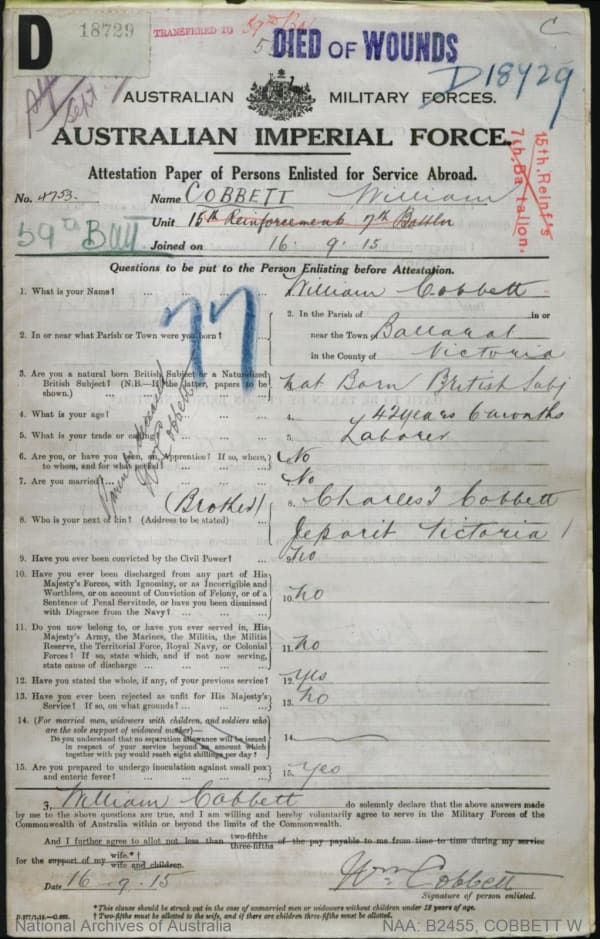 D
18729
TRANSFERRED TO 59th Bat
DIED OF WOUNDS
C
D18429
Sept
AUSTRALIAN MILITARY FORCES.
AUSTRALIAN IMPERIAL FORCE.
Attestation Paper of Persons Enlisted for Service Abroad.
15th. Reinf's
7th. Battalion.
No. 4753 Name COBBETT William
Unit 15th Reinforcement 7th Battln
59th Batt
Joined on 16. 9. 15
Questions to be put to the Person Enlisting before Attestation.
77
1. What is your Name? ... ... ... ... William Cobbett
2. In or near what Parish or Town were you born? 2. In the Parish of in or
near the Town of Ballarat
in the County of Victoria
3. Are you a natural born British Subject or a Naturalized
British Subject? (N.B.—If the latter, papers to be
shown.) Nat Born British Subj
4. What is your age? 4. 42 years 6 months
5. What is your trade or calling? 5. Laborer
6. Are you, or have you been, an Apprentice? If so, where,
to whom, and for what period? No
7. Are you married? No
8. Who is your next of kin? (Address to be stated) (Brother) 8. Charles J Cobbett
Jeparit Victoria
9. Have you ever been convicted by the Civil Power? 9. No
10. Have you ever been discharged from any part of His
Majesty's Forces, with Ignominy, or as Incorrigible and
Worthless, or on account of Conviction of Felony, or of a
Sentence of Penal Servitude, or have you been dismissed
with Disgrace from the Navy? 10. No
11. Do you now belong to, or have you ever served in, His
Majesty's Army, the Marines, the Militia, the Militia
Reserve, the Territorial Force, Royal Navy, or Colonial
Forces? If so, state which, and if not now serving,
state cause of discharge 11. No
12. Have you stated the whole, if any, of your previous service? 12. Yes
13. Have you ever been rejected as unfit for His Majesty's
Service? If so, on what grounds? 13. No
14. (For married men, widowers with children, and soldiers who
are the sole support of widowed mother)—
Do you understand that no separation allowance will be issued
in respect of your service beyond an amount which
together with pay would reach eight shillings per day? 14.
15. Are you prepared to undergo inoculation against small pox
and enteric fever? 15. Yes
I, William Cobbett do solemnly declare that the above answers made
by me to the above questions are true, and I am willing and hereby voluntarily agree to serve in the Military Forces of the
Commonwealth of Australia within or beyond the limits of the Commonwealth.
And I further agree to allot not less than two-fifths three-fifths of the pay payable to me from time to time during my service
for the support of my wife.*† wife and children.
Date 16. 9. 15
Wm Cobbett
Signature of person enlisted.
*This clause should be struck out in the case of unmarried men or widowers without children under 18 years of age.
† Two-fifths must be allotted to the wife, and if there are children three-fifths must be allotted.
National Archives of Australia
NAA: B2455, COBBETT W